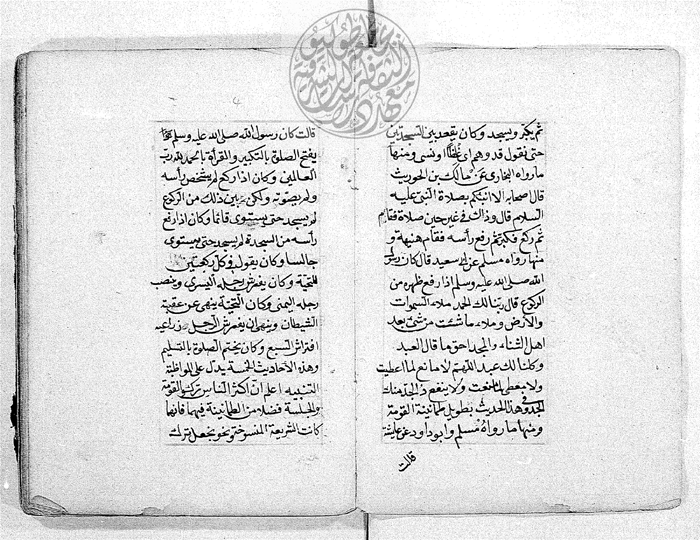 ثم يكبر ويسجد وكان يقعد بين السجدتين
حتى نقول قد وهم اى غلطا او نسى ومنها
مارواه البخارى عن مالك بن الحويرث
قال صحابه الا انبئكم بصلاة النبى عليه
السلام قال وذاك فى غير حين صلاة فقام
ثم ركع فكبر ثم رفع رأسه فقام هنيهة و
منها رواه مسلم عن ابى سعيد قال كان رسول
الله صلى الله عليه وسلم اذا رفع ظهره من
الركوع قال ربنا لك الحمد ملاء السموات
والارض وملاء ما شئت من شئ بعد
اهل الثناء والمجد احق ما قال العبد
وكلنا لك عبد اللهم لا مانع لما اعطيت
ولا معطى لما منعت ولا ينفع ذا الجد منك
الجد وفى هذا الحديث تطويل طمانينة القومة
ومنها ما رواه مسلم وابو داود عن عايشة
قالت
قالت كان رسول الله صلى الله عليه وسلم
يفتح الصلوة بالتكبير والقرأة بالحمد لله رب
العالمين وكان اذا ركع لم يشخص رأسه
ولم يصوته ولكن بين ذلك من الركوع
لم يسجد حتى يستوى قائما وكان اذا رفع
رأسه من السجدة لم يسجد حتى يستوى
جالسا وكان يقول فى كل ركعتين
التحية وكان يفرش رجله اليسرى وينصب
رجله اليمنى وكان التحية ينهى عن عقبة
الشيطان وينهى ان يفترش الرجل ذراعيه
افتراش السبع وكان يختم الصلوة بالتسليم
وهذه الأحاديث الخمسة يدل على المواظبة
التنبيه اعلم ان اكثر الناس تركوا القومة
والجلسة فضلا من الطمانينة فيهما فانها
كانت الشريعة المنسوخة ونحو يجعل ترك